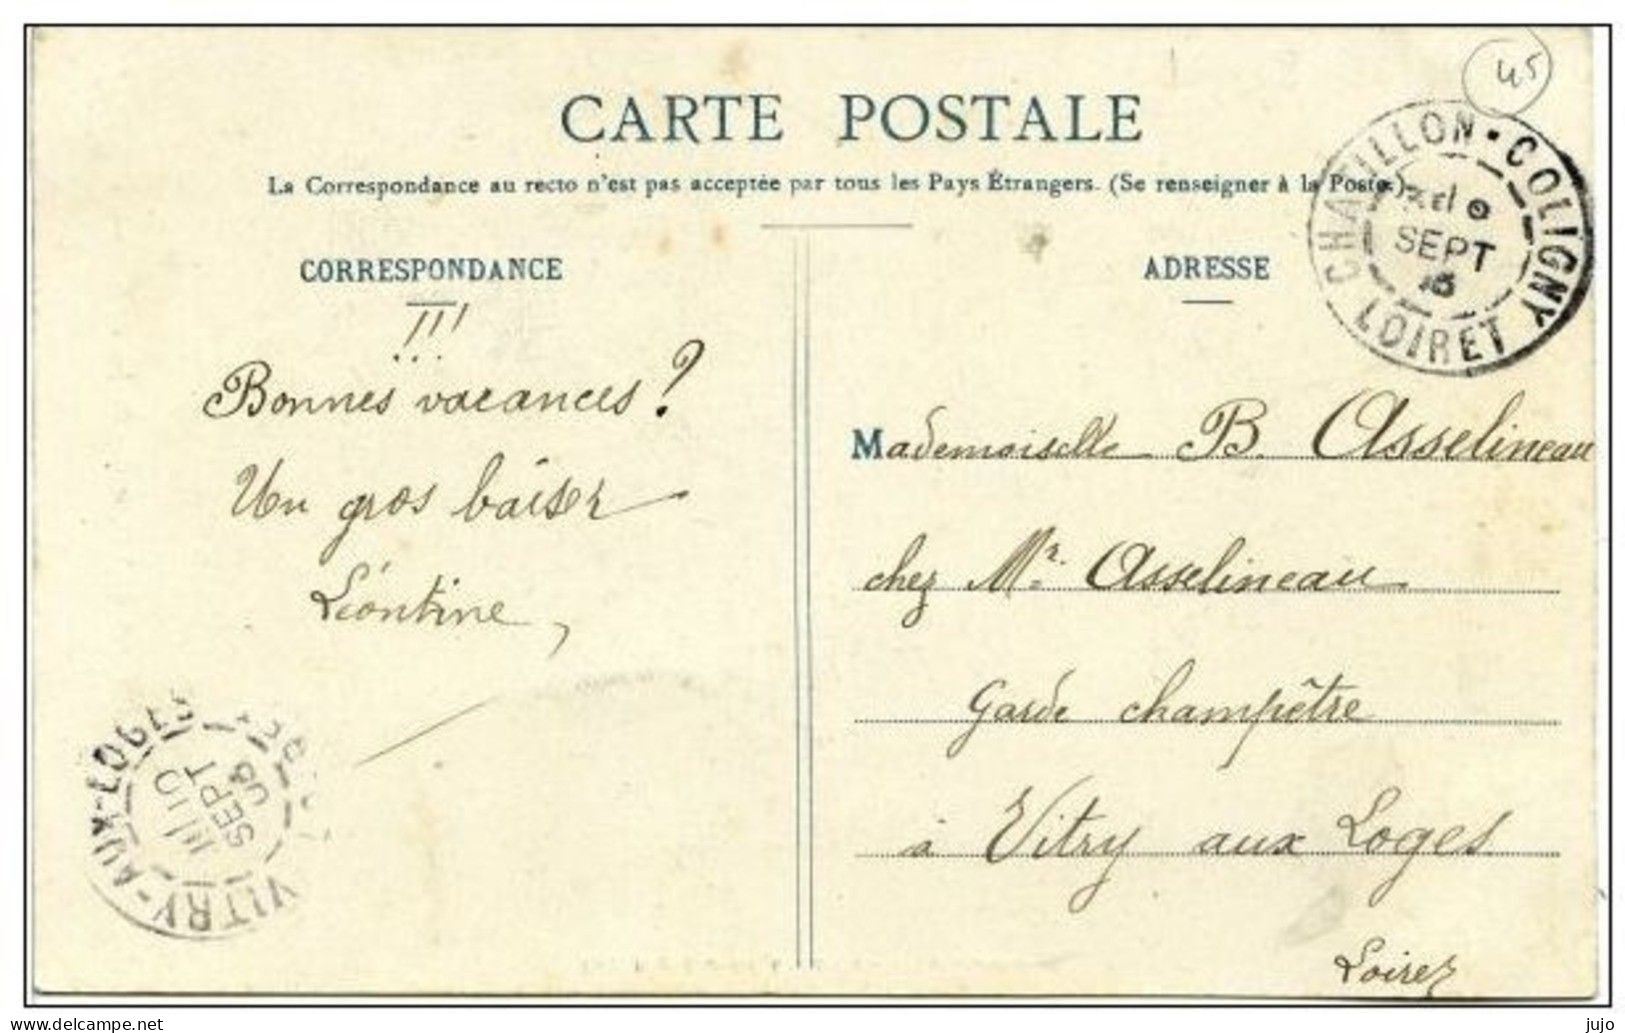 45
CARTE POSTALE
La Correspondance au recto n'est pas acceptée par tous les Pays Étrangers. (Se renseigner à la Poste.)
CHATILLON-COLIGNY
SEPT
LOIRET
CORRESPONDANCE
!!!
Bonnes vacances ?
Un gros baiser
Léontine,
ADRESSE
Mademoiselle B. Asselineau
chez Mr. Asselineau
Garde champêtre
à Vitry aux Loges
Loiret
VITRY-AUX-LOGES
10
SEPT
www.delcampe.net
jujo